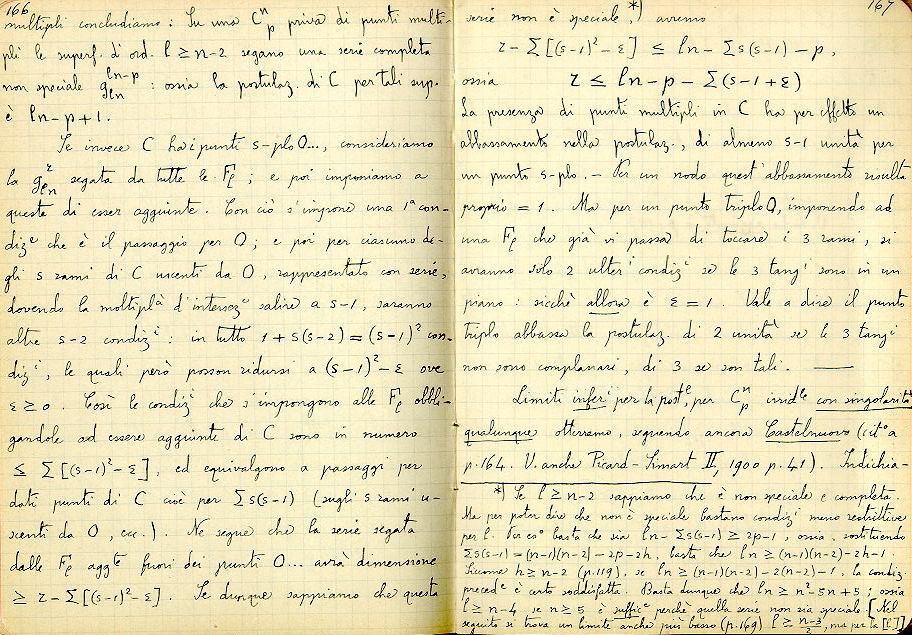 166
multipli concludiamo: Su una C^n_p priva di punti multi-
pli le superf. di ord. l ≥ n-2 segano una serie completa
non speciale g^{ln-p}_{ln} : ossia la postulaz. di C per tali sup.
è ln-p+1.
Se invece C ha i punti s-plo O..., consideriamo
la g^r_{ln} segata da tutte le F_l ; e poi imponiamo a
queste di esser aggiunte. Con ciò s'impone una 1ª con-
diz^e che è il passaggio per O; e poi per ciascuno de-
gli s rami di C uscenti da O, rappresentato con serie,
dovendo la moltipl^à d'intersez^e salire a s-1, saranno
altre s-2 condiz^i : in tutto 1+s(s-2) = (s-1)^2 con-
diz^i, le quali però posson ridursi a (s-1)^2-ε ove
ε ≥ 0. Così le condiz^i che s'impongono alle F_l obbli-
gandole ad essere aggiunte di C sono in numero
≤ Σ[(s-1)^2-ε], ed equivalgono a passaggi per
dati punti di C cioè per Σs(s-1) (sugli s rami u-
scenti da O, ecc.). Ne segue che la serie segata
dalle F_l agg^te fuori dei punti O... avrà dimensione
≥ r-Σ[(s-1)^2-ε]. Se dunque sappiamo che questa
167
serie non è speciale,*) avremo
r-Σ[(s-1)^2-ε] ≤ ln-Σs(s-1)-p,
ossia r ≤ ln-p-Σ(s-1+ε)
La presenza di punti multipli in C ha per effetto un
abbassamento nella postulaz., di almeno s-1 unità per
un punto s-plo. – Per un nodo quest'abbassamento risulta
proprio = 1. Ma per un punto triplo O, imponendo ad
una F_l che già vi passa di toccare i 3 rami, si
avranno solo 2 ulter^i condiz^i se le 3 tang^i sono in un
piano: sicchè allora è ε = 1. Vale a dire il punto
triplo abbassa la postulaz. di 2 unità se le 3 tang^i
non sono complanari, di 3 se son tali. —
Limiti infer^i per la post^e, per C^n_p irrid^le con singolarità
qualunque otterremo, seguendo ancora Castelnuovo (cit^o a
p.164. V. anche Picard-Simart II, 1900 p.41). Indichia-
*) Se l ≥ n-2 sappiamo che è non speciale e completa.
Ma per poter dire che non è speciale bastano condiz^i meno restrittive
per l. Per es^o basta che sia ln-Σs(s-1) ≥ 2p-1, ossia, sostituendo
Σs(s-1) = (n-1)(n-2)-2p-2h, basta che ln ≥ (n-1)(n-2)-2h-1.
Siccome h ≥ n-2 (p.119), se ln ≥ (n-1)(n-2)-2(n-2)-1, la condiz.
preced^e è certo soddisfatta. Basta dunque che ln ≥ n^2-5n+5; ossia
l ≥ n-4 se n ≥ 5 è suffic^e perchè quella serie non sia speciale. [Nel
seguito si trova un limite anche più basso (p.169) l ≥ \frac{n-3}{2}, ma per la